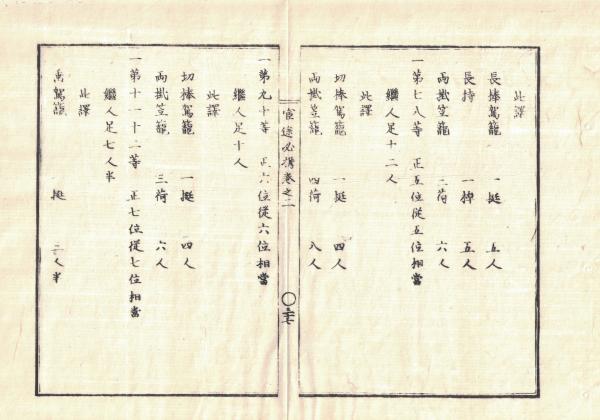 此譯
長棒駕籠 一挺 五人
長持 一棹 五人
両掛笠籠 二荷 六人
一第七八等 正五位従五位相當
繼人足十二人
此譯
切棒駕籠 一挺 四人
両掛笠籠 四荷 八人
宦途必携巻之二
一第九十等 正六位従六位相當
繼人足十人
此譯
切棒駕籠 一挺 四人
両掛笠籠 三荷 六人
一第十一十二等 正七位従七位相當
繼人足七人半
此譯
駕籠 一挺 二人半